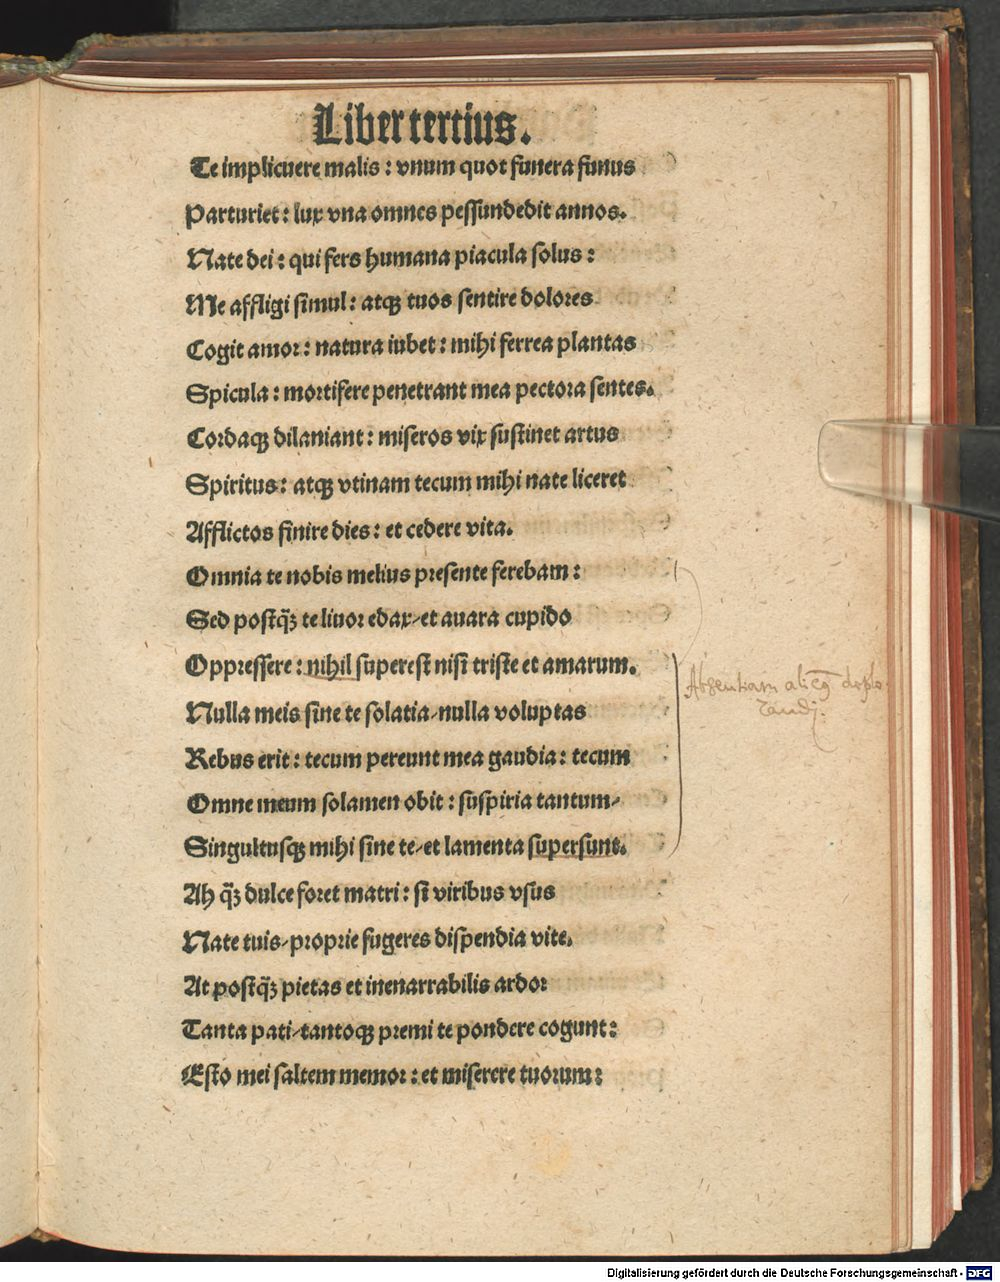 Liber tertius.
Te implicuere malis : vnum quot funera funus
Parturiet : lux vna omnes pessundedit annos.
Nate dei : qui fers humana piacula solus :
Me affligi simul : atqꝫ tuos sentire dolores
Cogit amor : natura iubet : mihi ferrea plantas
Spicula : mortifere penetrant mea pectora sentes.
Cordaqꝫ dilaniant : miseros vix sustinet artus
Spiritus : atqꝫ vtinam tecum mihi nate liceret
Afflictos finire dies : et cedere vita.
Omnia te nobis melius presente ferebam :
Sed postq̃ꝫ te liuor edax/et auara cupido
Oppressere : nihil superest nisi triste et amarum.
Nulla meis sine te solatia/nulla voluptas
Rebus erit : tecum pereunt mea gaudia : tecum
Omne meum solamen obit : suspiria tantum/
Singultusqꝫ mihi sine te/et lamenta supersunt.
Ah q̃ꝫ dulce foret matri : si viribus vsus
Nate tuis/proprie fugeres dispendia vite.
At postq̃ꝫ pietas et inenarrabilis ardor
Tanta pati/tantoqꝫ premi te pondere cogunt :
Esto mei saltem memor : et miserere tuorum :
Absentiam deplo-
randj.
Digitalisierung gefördert durch die Deutsche Forschungsgemeinschaft - DFG